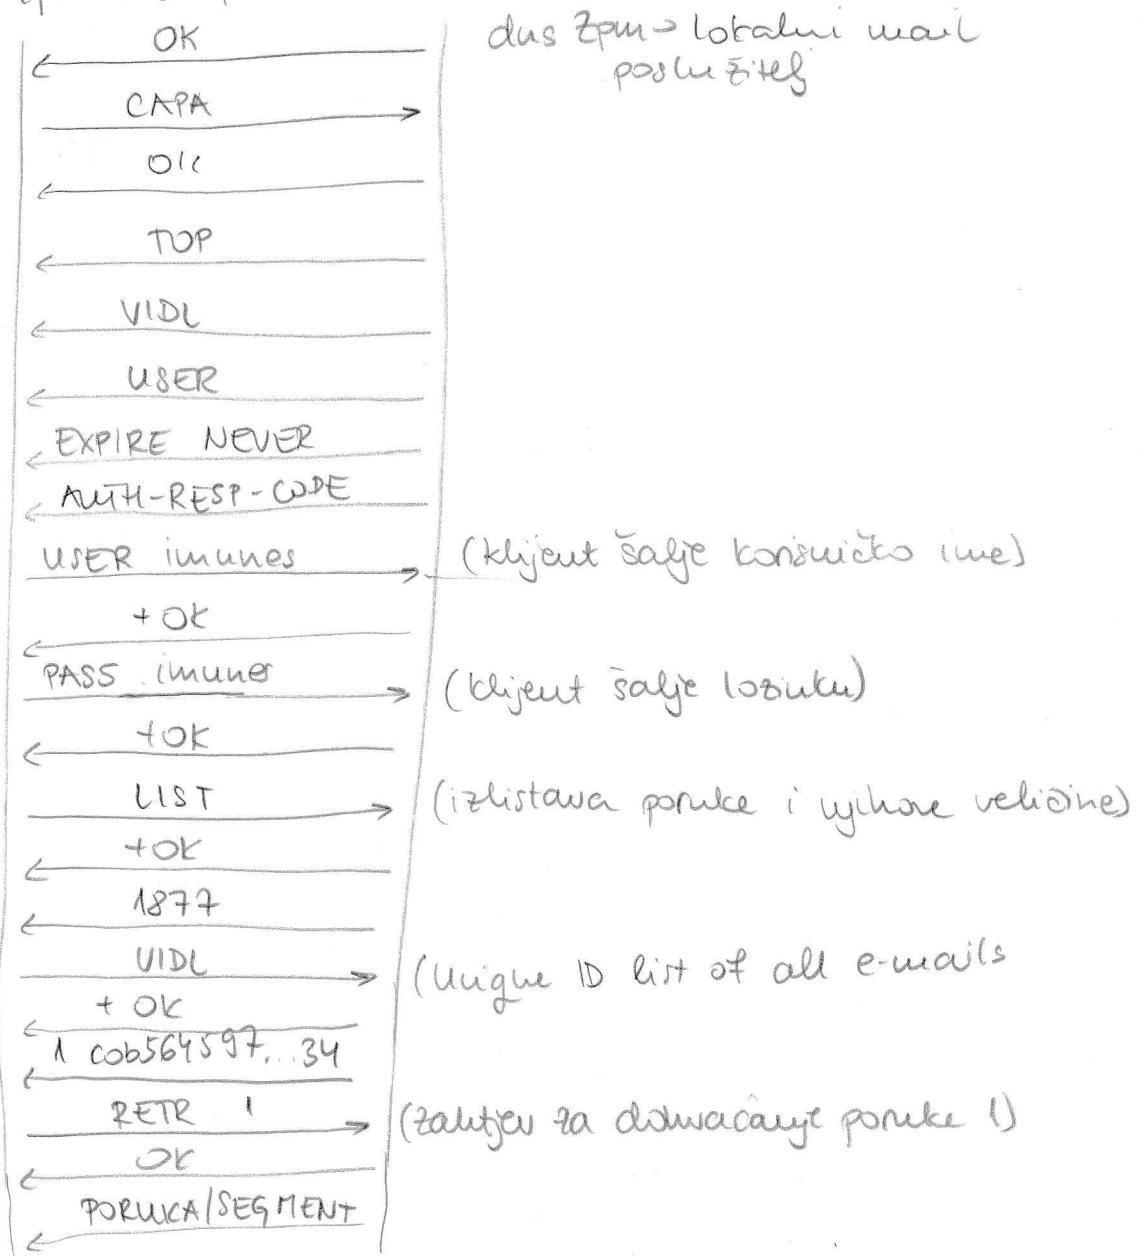 OK
dns zpm → lokalni mail
poslužitelj
CAPA
OK
TOP
UIDL
USER
EXPIRE NEVER
AUTH-RESP-CODE
USER imunes (klijent šalje korisničko ime)
+OK
PASS imunes (klijent šalje lozinku)
+OK
LIST (izlistava poruke i njihove veličine)
+OK
1877
UIDL (Unique ID list of all e-mails
+ OK
1 cob564597...34
RETR 1 (zahtjev za dohvaćanje poruke 1)
OK
PORUKA/SEGMENT